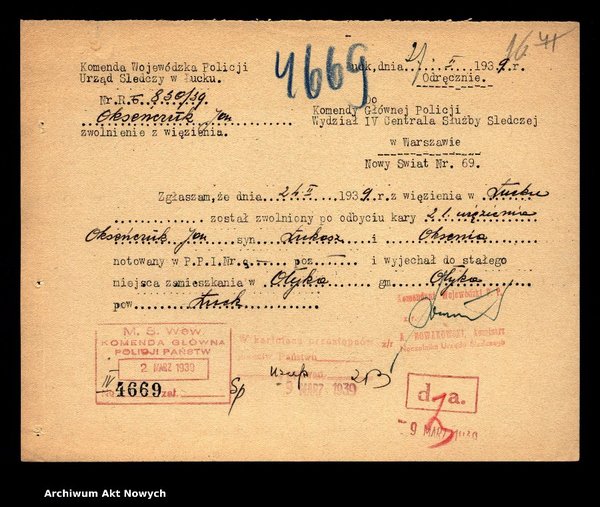 4669
16 41
Komenda Wojewódzka Policji
Urząd Śledczy w Łucku.
Łuck, dnia 27 II 1939.r.
Odręcznie.
Nr.R.6. 850/39.
Oksenczuk Jan
zwolnienie z więzienia.
Do
Komendy Głównej Policji
Wydział IV Centrala Służby Śledczej
w Warszawie
Nowy Świat Nr. 69.
Zgłaszam, że dnia 24 II 1939.r. z więzienia w Łucku
został zwolniony po odbyciu kary 2 l. więzienia
Oksenczuk Jan syn Łukasz i Oksenia
notowany w P.P.I.Nr. poz i wyjechał do stałego
miejsca zamieszkania w Ołyka gm Ołyka
pow Łuck
Komendant Wojewódzki P.P.
z/r
A. NOWAKOWSKI, Komisarz
Naczelnika Urzędu Śledczego
M. S. Wew.
KOMENDA GŁÓWNA
POLICJI PAŃSTW
2 MARZ 1939
IV
No 4669 zał.
Sp
W kartotece przestępców
Państwu
- 9 MARZ. 1939
d. a.
- 9 MARZ 1939
Archiwum Akt Nowych